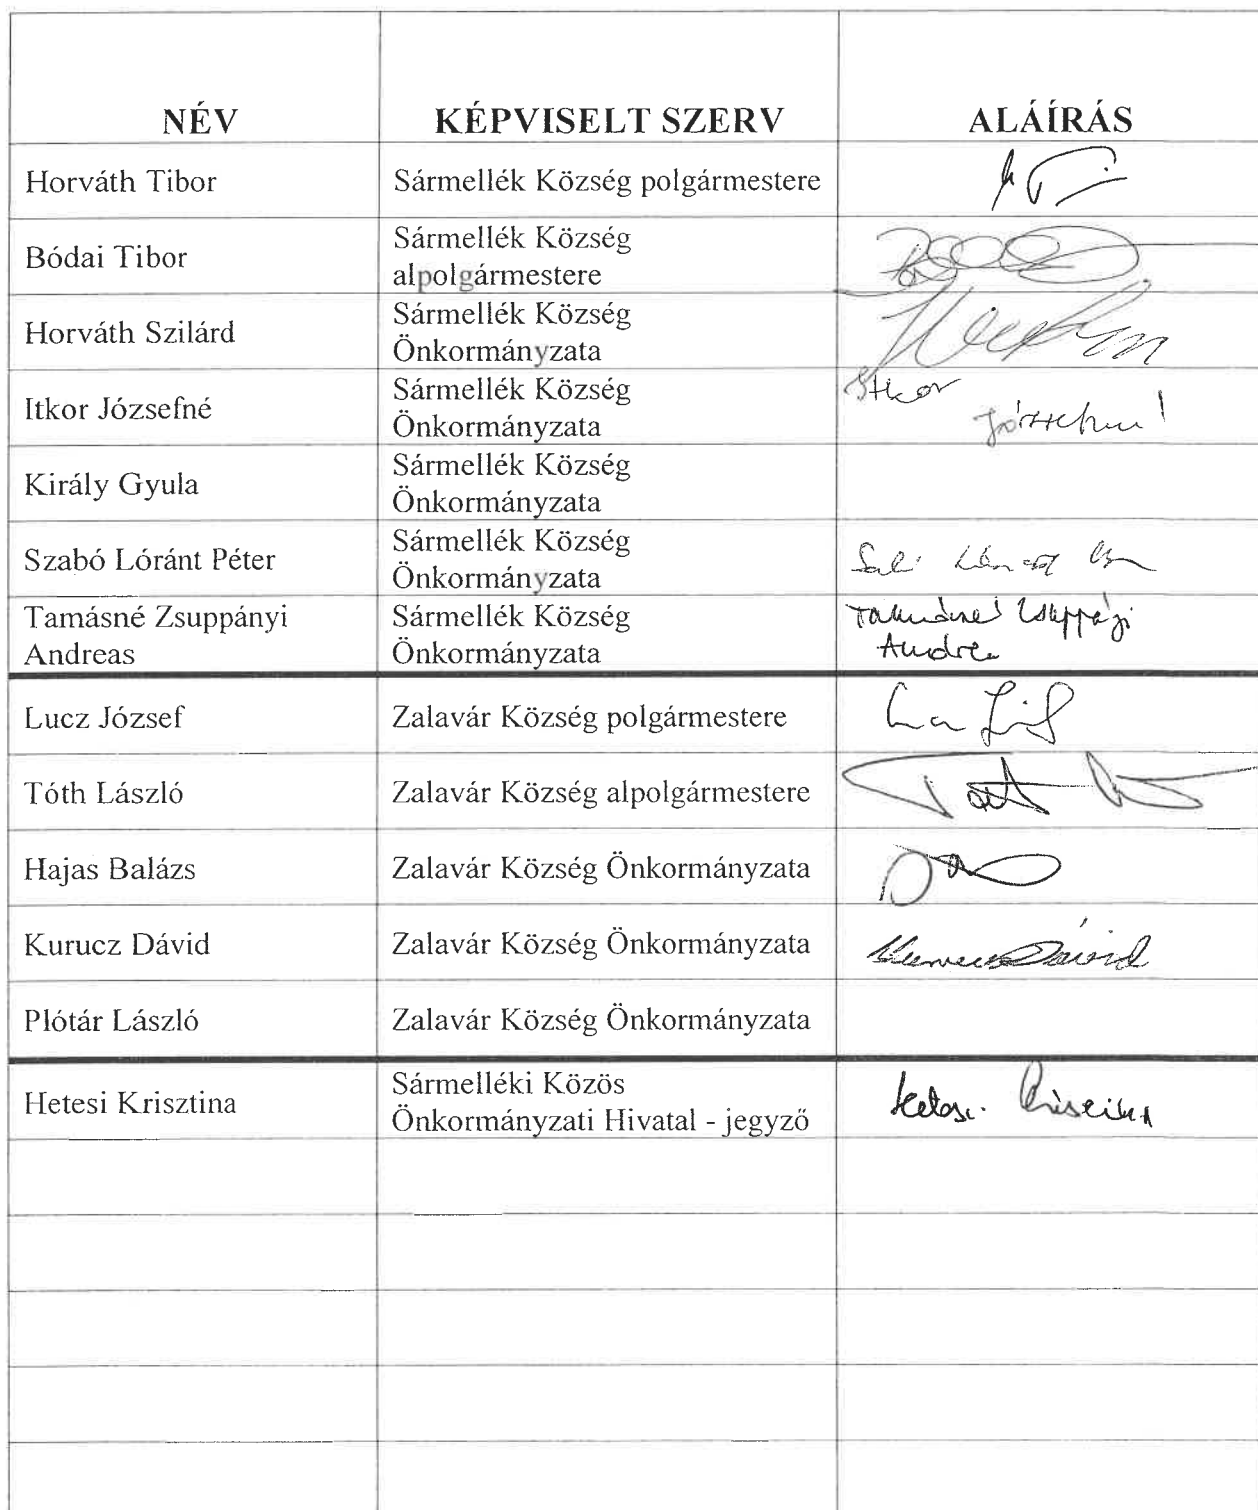 NÉV KÉPVISELT SZERV ALÁÍRÁS
Horváth Tibor Sármellék Község polgármestere
Bódai Tibor Sármellék Község
alpolgármestere
Horváth Szilárd Sármellék Község
Önkormányzata
Itkor Józsefné Sármellék Község
Önkormányzata
Itkor
Józsefné
Király Gyula Sármellék Község
Önkormányzata
Szabó Lóránt Péter Sármellék Község
Önkormányzata
Tamásné Zsuppányi
Andreas Sármellék Község
Önkormányzata
Tamásné Zsuppányi
Andrea
Lucz József Zalavár Község polgármestere
Tóth László Zalavár Község alpolgármestere Tóth
Hajas Balázs Zalavár Község Önkormányzata
Kurucz Dávid Zalavár Község Önkormányzata Kurucz Dávid
Plótár László Zalavár Község Önkormányzata
Hetesi Krisztina Sármelléki Közös
Önkormányzati Hivatal - jegyző
Hetesi Krisztina